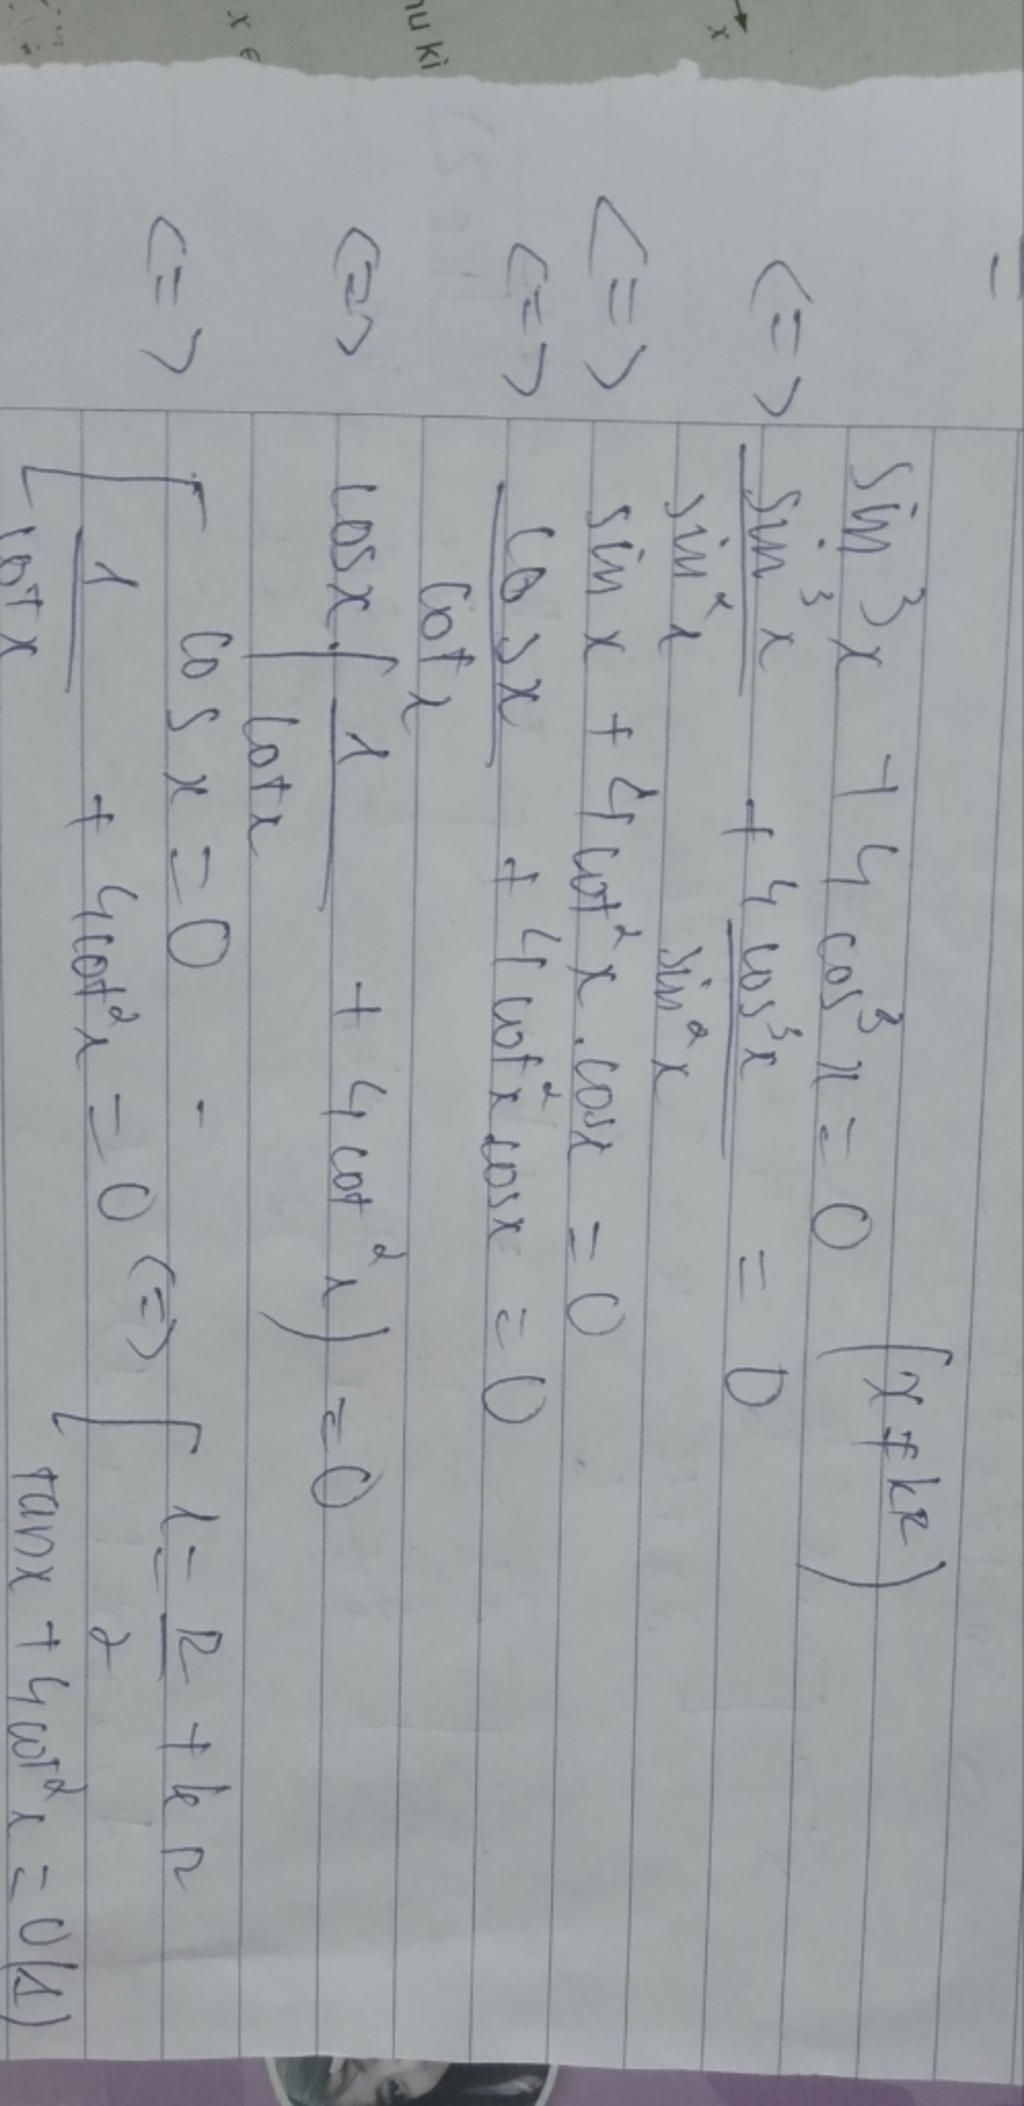 sin³x + 4cos³x = 0 (x ≠ kπ)
<=> sin³x / sin²x + 4cos³x / sin²x = 0
<=> sin x + 4cot²x.cosx = 0
<=> cosx / cotx + 4cot²x cosx = 0
<=> cosx.(1 / cotx + 4cot²x) = 0
<=> [ cosx = 0
1 / cotx + 4cot²x = 0 <=> [ x = π / 2 + kπ
tanx + 4cot²x = 0 (1)
x